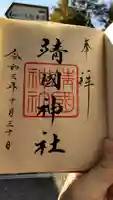 奉拝
靖國神社
令和三年十月三十日
靖國
神社